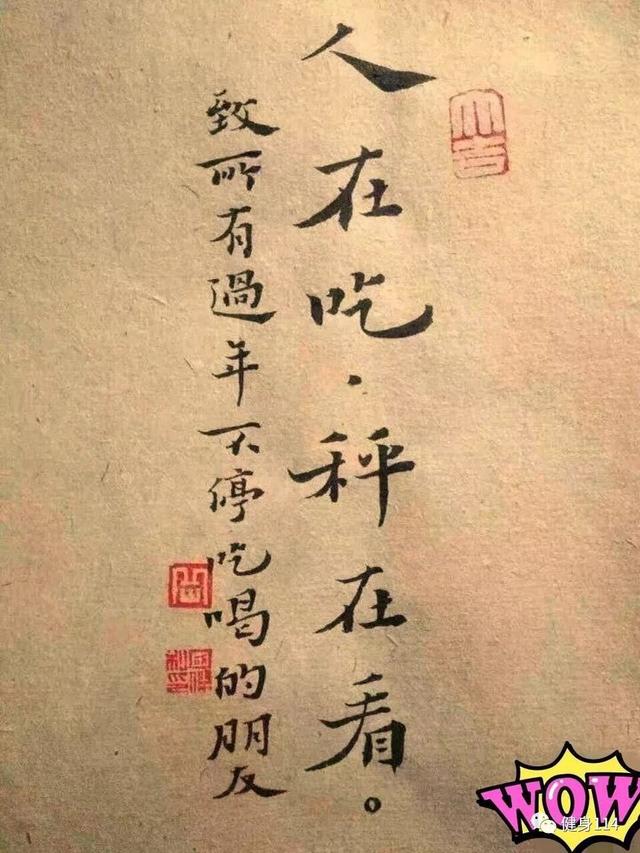 人在吃·秤在看。
致所有過年不停吃喝的朋友
大吉
WOW
健身114